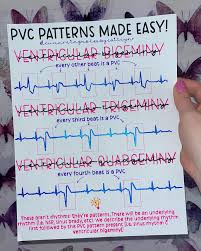 PVC PATTERNS MADE EASY!
VENTRICULAR BIGEMINY
every other beat is a PVC
VENTRICULAR TRIGEMINY
every third beat is a PVC
VENTRICULAR QUADGEMINY
every fourth beat is a PVC
These aren't rhythms! They're patterns. There will be an underlying
rhythm (i.e. NSR, sinus brady, etc). We describe the underlying rhythm
first followed by the PVC pattern present (i.e. sinus rhythm c
ventricular bigeminy).